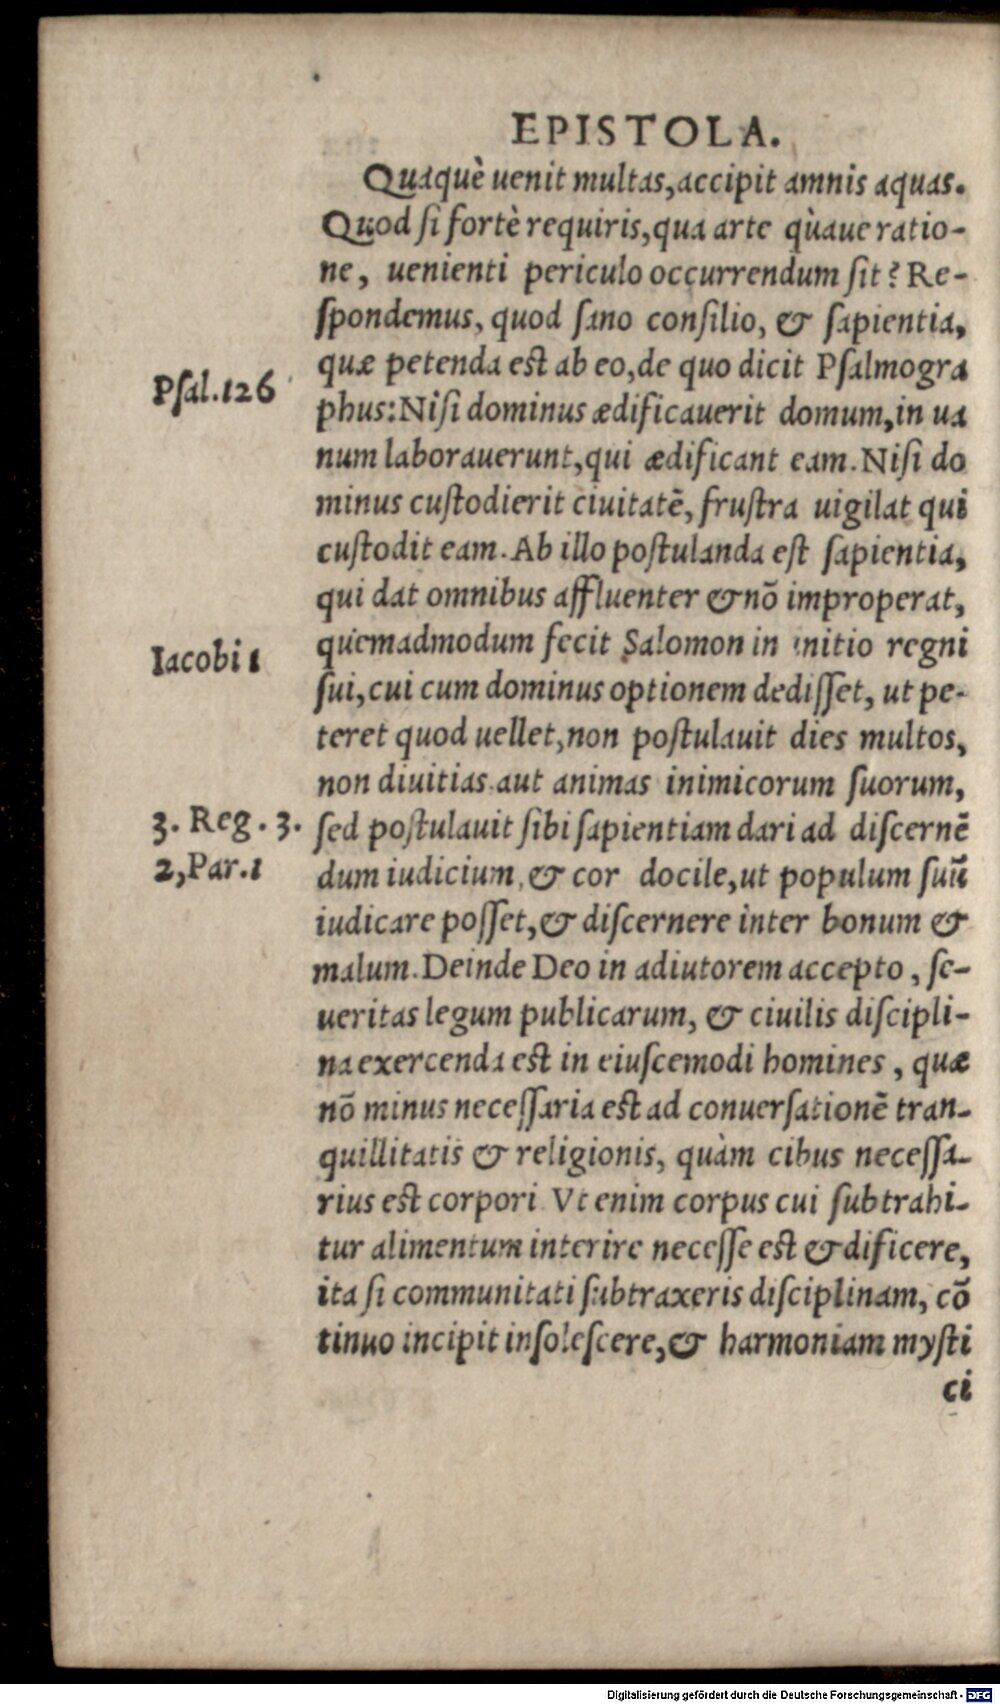 EPISTOLA.
Quaquè uenit multas, accipit amnis aquas.
Quod ſi fortè requiris, qua arte qùaue ratio-
ne, uenienti periculo occurrendum ſit? Re-
ſpondemus, quod ſano conſilio, & ſapientia,
quæ petenda est ab eo, de quo dicit Pſalmogra
Pſal.126
phus: Niſi dominus ædificauerit domum, in ua
num laborauerunt, qui ædificant eam. Niſi do
minus cuſtodierit ciuitatē, fruſtra uigilat qui
cuſtodit eam. Ab illo poſtulanda eſt ſapientia,
qui dat omnibus affluenter & nō improperat,
quemadmodum fecit Salomon in initio regni
Iacobi 1
ſui, cui cum dominus optionem dediſſet, ut pe-
teret quod uellet, non poſtulauit dies multos,
non diuitias aut animas inimicorum ſuorum,
3. Reg. 3.
ſed poſtulauit ſibi ſapientiam dari ad diſcernē
2, Par. 1
dum iudicium, & cor docile, ut populum ſuū
iudicare poſſet, & diſcernere inter bonum &
malum. Deinde Deo in adiutorem accepto, ſe-
ueritas legum publicarum, & ciuilis diſcipli-
na exercenda eſt in eiuſcemodi homines, quæ
nō minus neceſſaria eſt ad conuerſationē tran-
quillitatis & religionis, quàm cibus neceſſa-
rius eſt corpori. Vt enim corpus cui ſubtrahi-
tur alimentum interire neceſſe eſt & dificere,
ita ſi communitati ſubtraxeris diſciplinam, cō
tinuo incipit inſoleſcere, & harmoniam myſti
ci
Digitalisierung gefördert durch die Deutsche Forschungsgemeinschaft - DFG